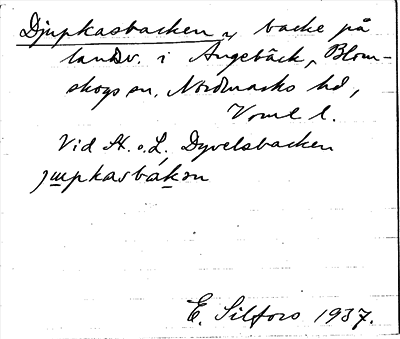 Djupkasbacken, backe på
landsv. i Ängebäck, Blom-
skogs sn, Nordmarks hd,
Vrml l.
Vid St. o. L. Dyvelsbacken
jupkasbakɔn
E. Silfors 1937.